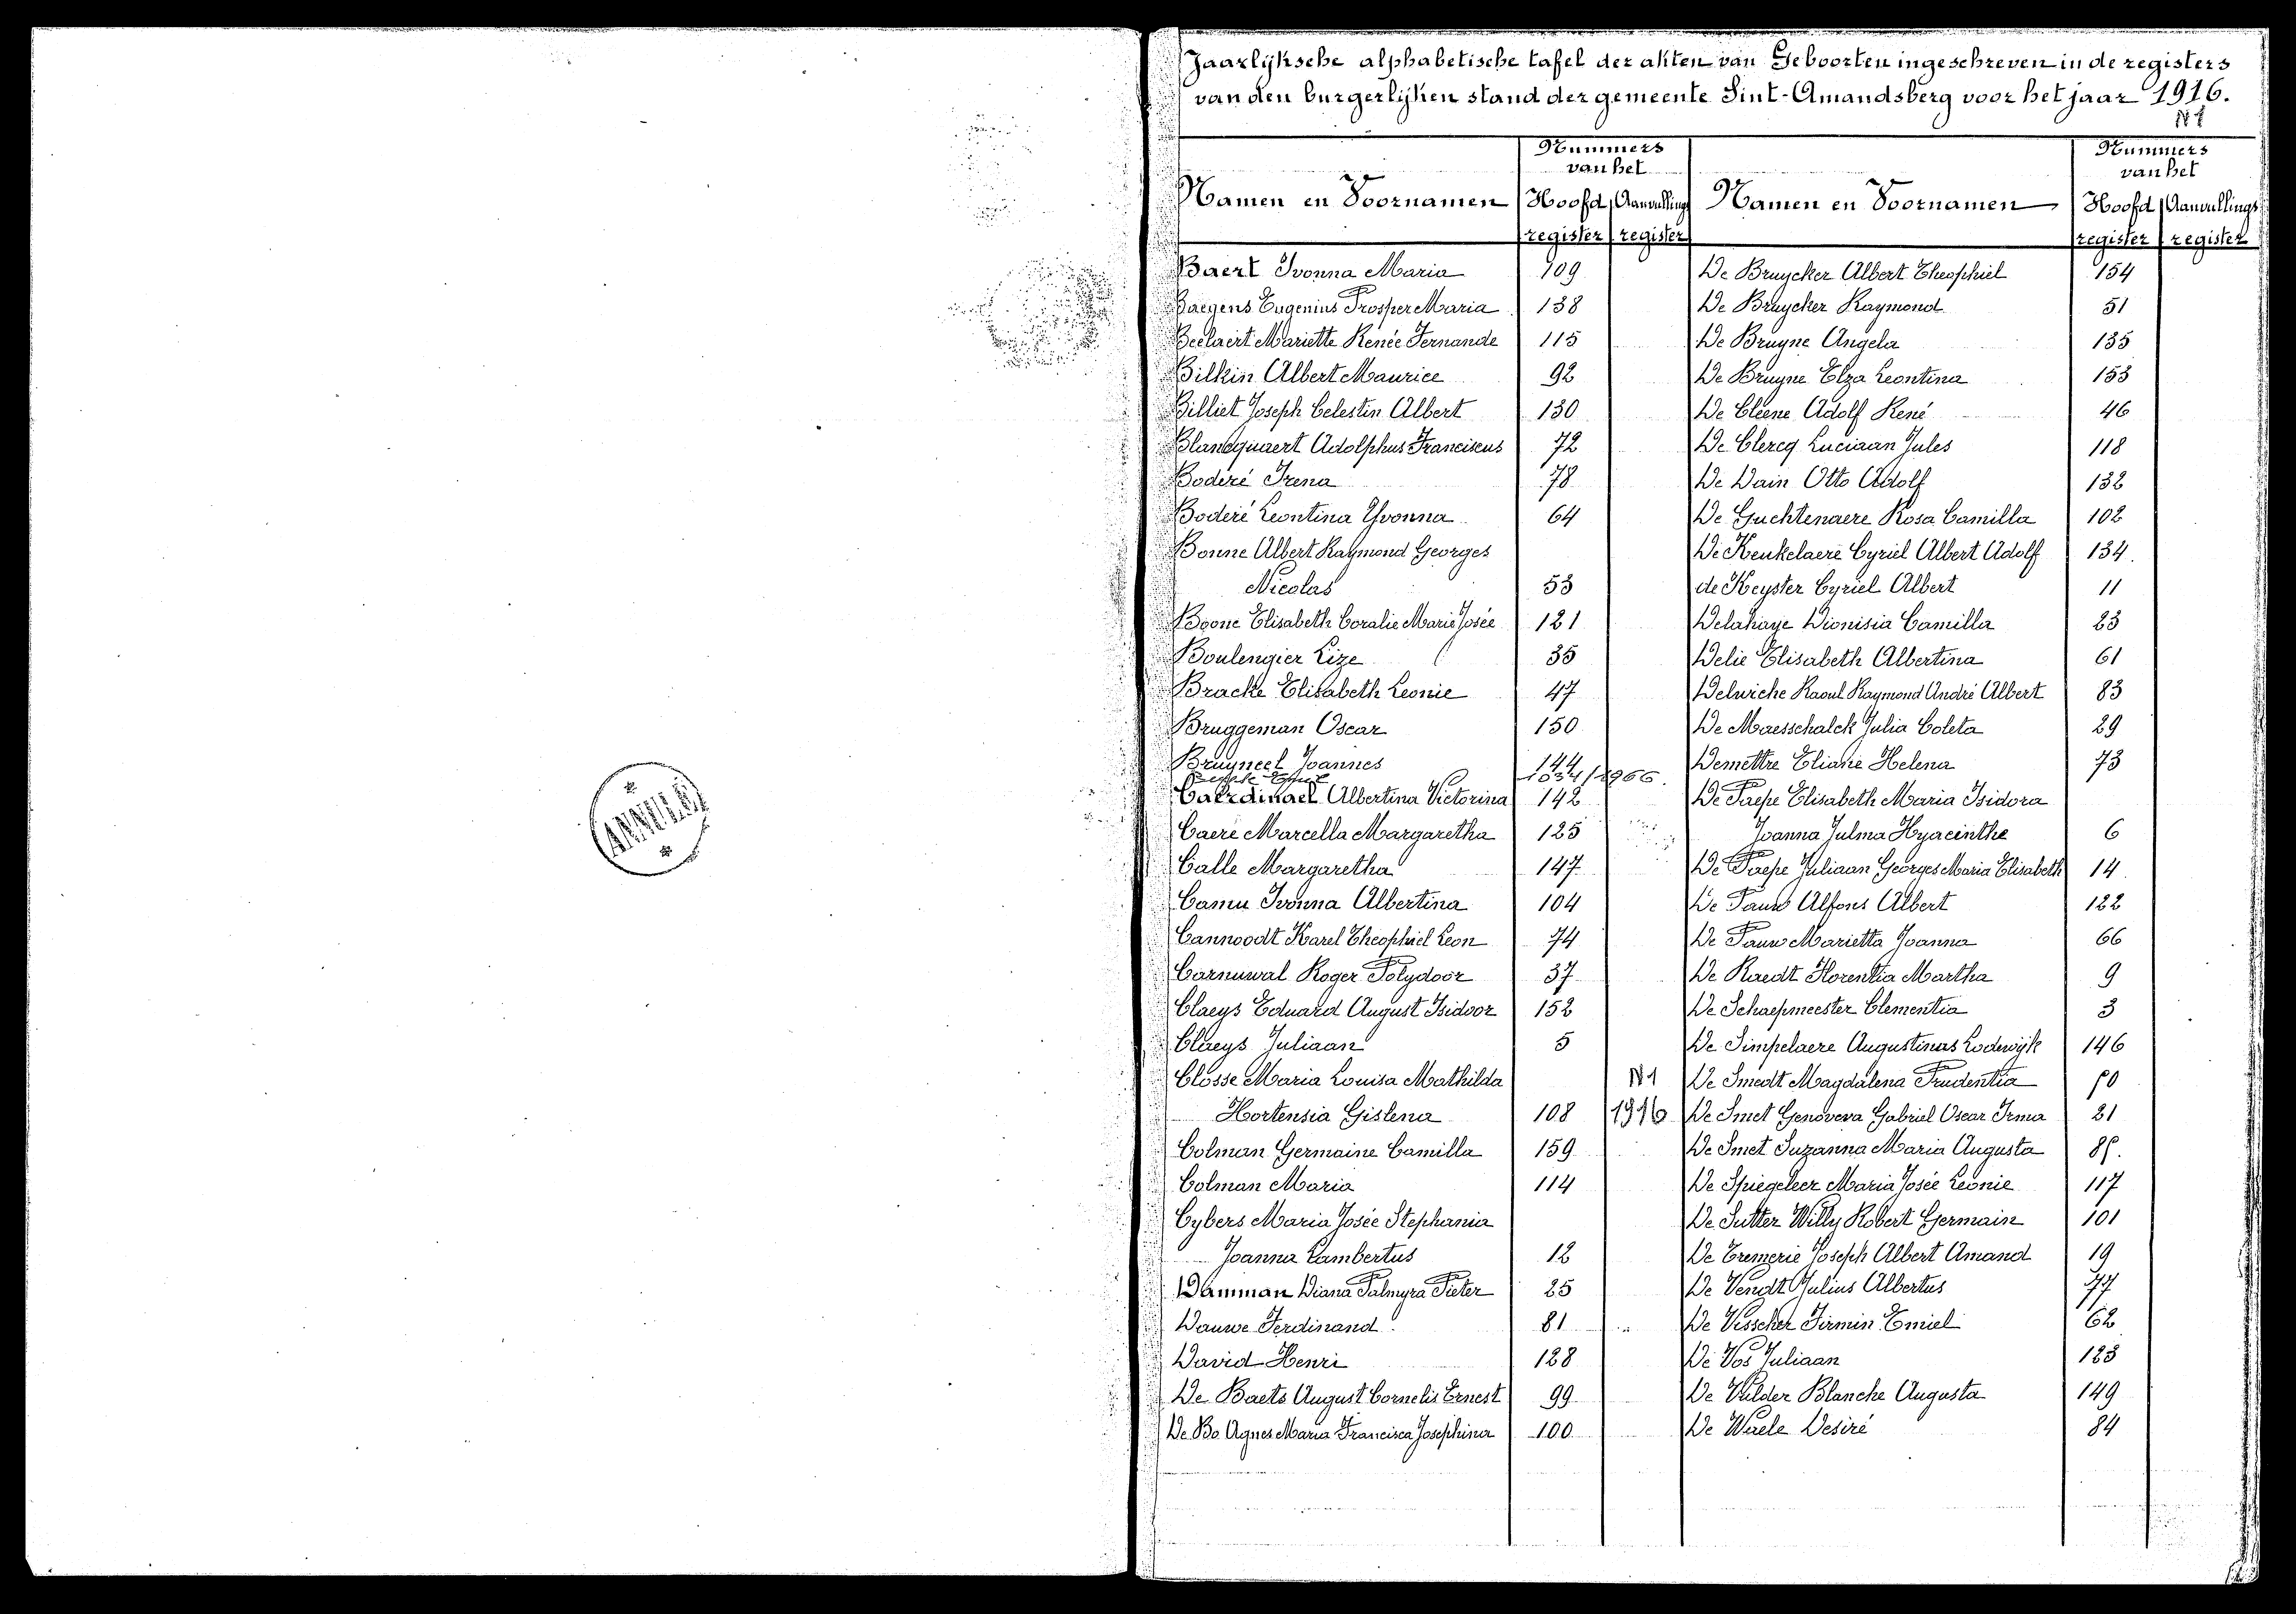 ANNULÉ
Jaarlijksche alphabetische tafel der akten van Geboorten ingeschreven in de registers
van den burgerlijken stand der gemeente Sint-Amandsberg voor het jaar 1916.
N 1
Namen en Voornamen
Nummers
van het
Hoofd register
Aanvullings register
Namen en Voornamen
Nummers
van het
Hoofd register
Aanvullings register
Baert Ivonna Maria 109
Baegens Eugenius Prosper Maria 138
Beelaert Mariette Renée Fernande 115
Bilkin Albert Maurice 92
Billiet Joseph Celestin Albert 130
Blancquaert Adolphus Franciscus 72
Boderé Irena 78
Boderé Leontina Yvonna 64
Bonne Albert Raymond Georges
Nicolas 53
Boone Elisabeth Coralie Marie Josée 121
Boulengier Lize 35
Bracke Elisabeth Leonie 47
Bruggeman Oscar 150
Bruyneel Joannes 144
Caerdinael Albertina Victorina 142
Caere Marcella Margaretha 125
Calle Margaretha 147
Camu Ivonna Albertina 104
Cannoodt Karel Theophiel Leon 74
Carnuwal Roger Polydoor 37
Claeys Eduard August Isidoor 152
Claeys Juliaan 5
Closse Maria Louisa Mathilda
Hortensia Gislena 108 N 1 1916
Colman Germaine Camilla 159
Colman Maria 114
Cybers Maria Josée Stephania
Joanna Lambertus 12
Damman Diana Palmyra Pieter 25
Dauwe Ferdinand 81
David Henri 128
De Baets August Cornelis Ernest 99
De Bo Agnes Maria Francisca Josephina 100
De Bruycker Albert Theophiel 154
De Bruycker Raymond 51
De Bruyne Angela 135
De Bruyne Elza Leontina 153
De Cleene Adolf René 46
De Clercq Luciaan Jules 118
De Dain Otto Adolf 132
De Guchtenaere Rosa Camilla 102
De Keukelaere Cyriel Albert Adolf 134
de Keyster Cyriel Albert 11
Delahaye Dionisia Camilla 23
Delie Elisabeth Albertina 61
Delwiche Raoul Raymond André Albert 83
De Maesschalck Julia Coleta 29
Demettre Eliane Helena 73
De Paepe Elisabeth Maria Isidora
Joanna Julma Hyacinthe 6
De Paepe Juliaan Georges Maria Elisabeth 14
De Pauw Alfons Albert 122
De Pauw Marietta Joanna 66
De Raedt Florentia Martha 9
De Schaepmeester Clementia 3
De Simpelaere Augustinus Lodewijk 146
De Smedt Magdalena Prudentia
De Smet Genoveva Gabriel Oscar Irma 21
De Smet Suzanna Maria Augusta
De Spiegeleer Maria Josée Leonie 117
De Sutter Willy Robert Germain 101
De Tremerie Joseph Albert Amand 19
De Vendt Julius Albertus 77
De Visscher Firmin Emiel 62
De Vos Juliaan 123
De Vulder Blanche Augusta 149
De Waele Desiré 84